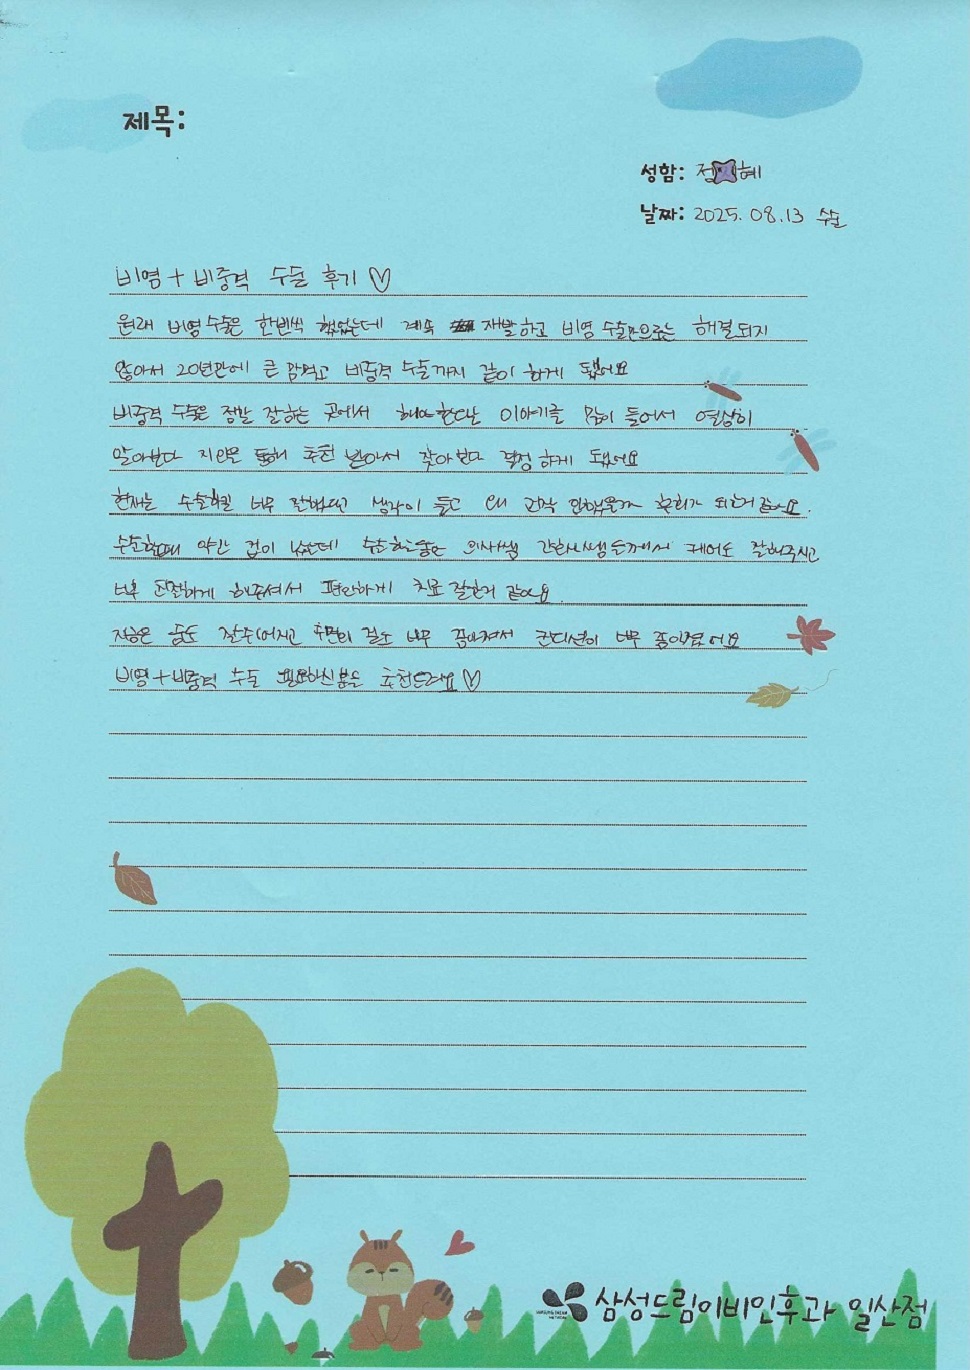 제목:
성함: 정 혜
날짜: 2025. 08.13 수술
비염 + 비중격 수술 후기 ♡
원래 비염수술은 한번씩 했었는데 계속 재발하고 비염 수술만으로는 해결되지
않아서 20년만에 큰 맘먹고 비중격 수술까지 같이 하게 됐어요
비중격 수술은 정말 잘하는 곳에서 해야한다는 이야기를 많이 들어서 열심히
알아보다 지인분 통해 추천 받아서 찾아보다 결정 하게 됐어요
현재는 수술하길 너무 잘했다고 생각이 들고 왜 진작 안했을까 후회가 되는거 같아요.
수술할때 약간 겁이 났는데 수술하는동안 의사쌤 간호사쌤들께서 케어도 잘해주시고
너무 친절하게 해주셔서 편안하게 치료 잘한거 같아요.
지금은 숨도 잘쉬어지고 수면의 질도 너무 좋아져서 컨디션이 너무 좋아졌어요
비염+비중격 수술 필요하신분들 추천드려요♡
삼성드림이비인후과 일산점